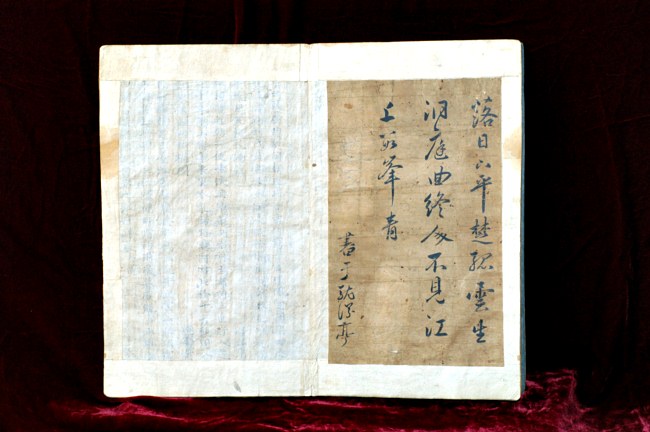 落日下平楚孤雲生
洞庭曲終人不見江
上數峯青
書于亭